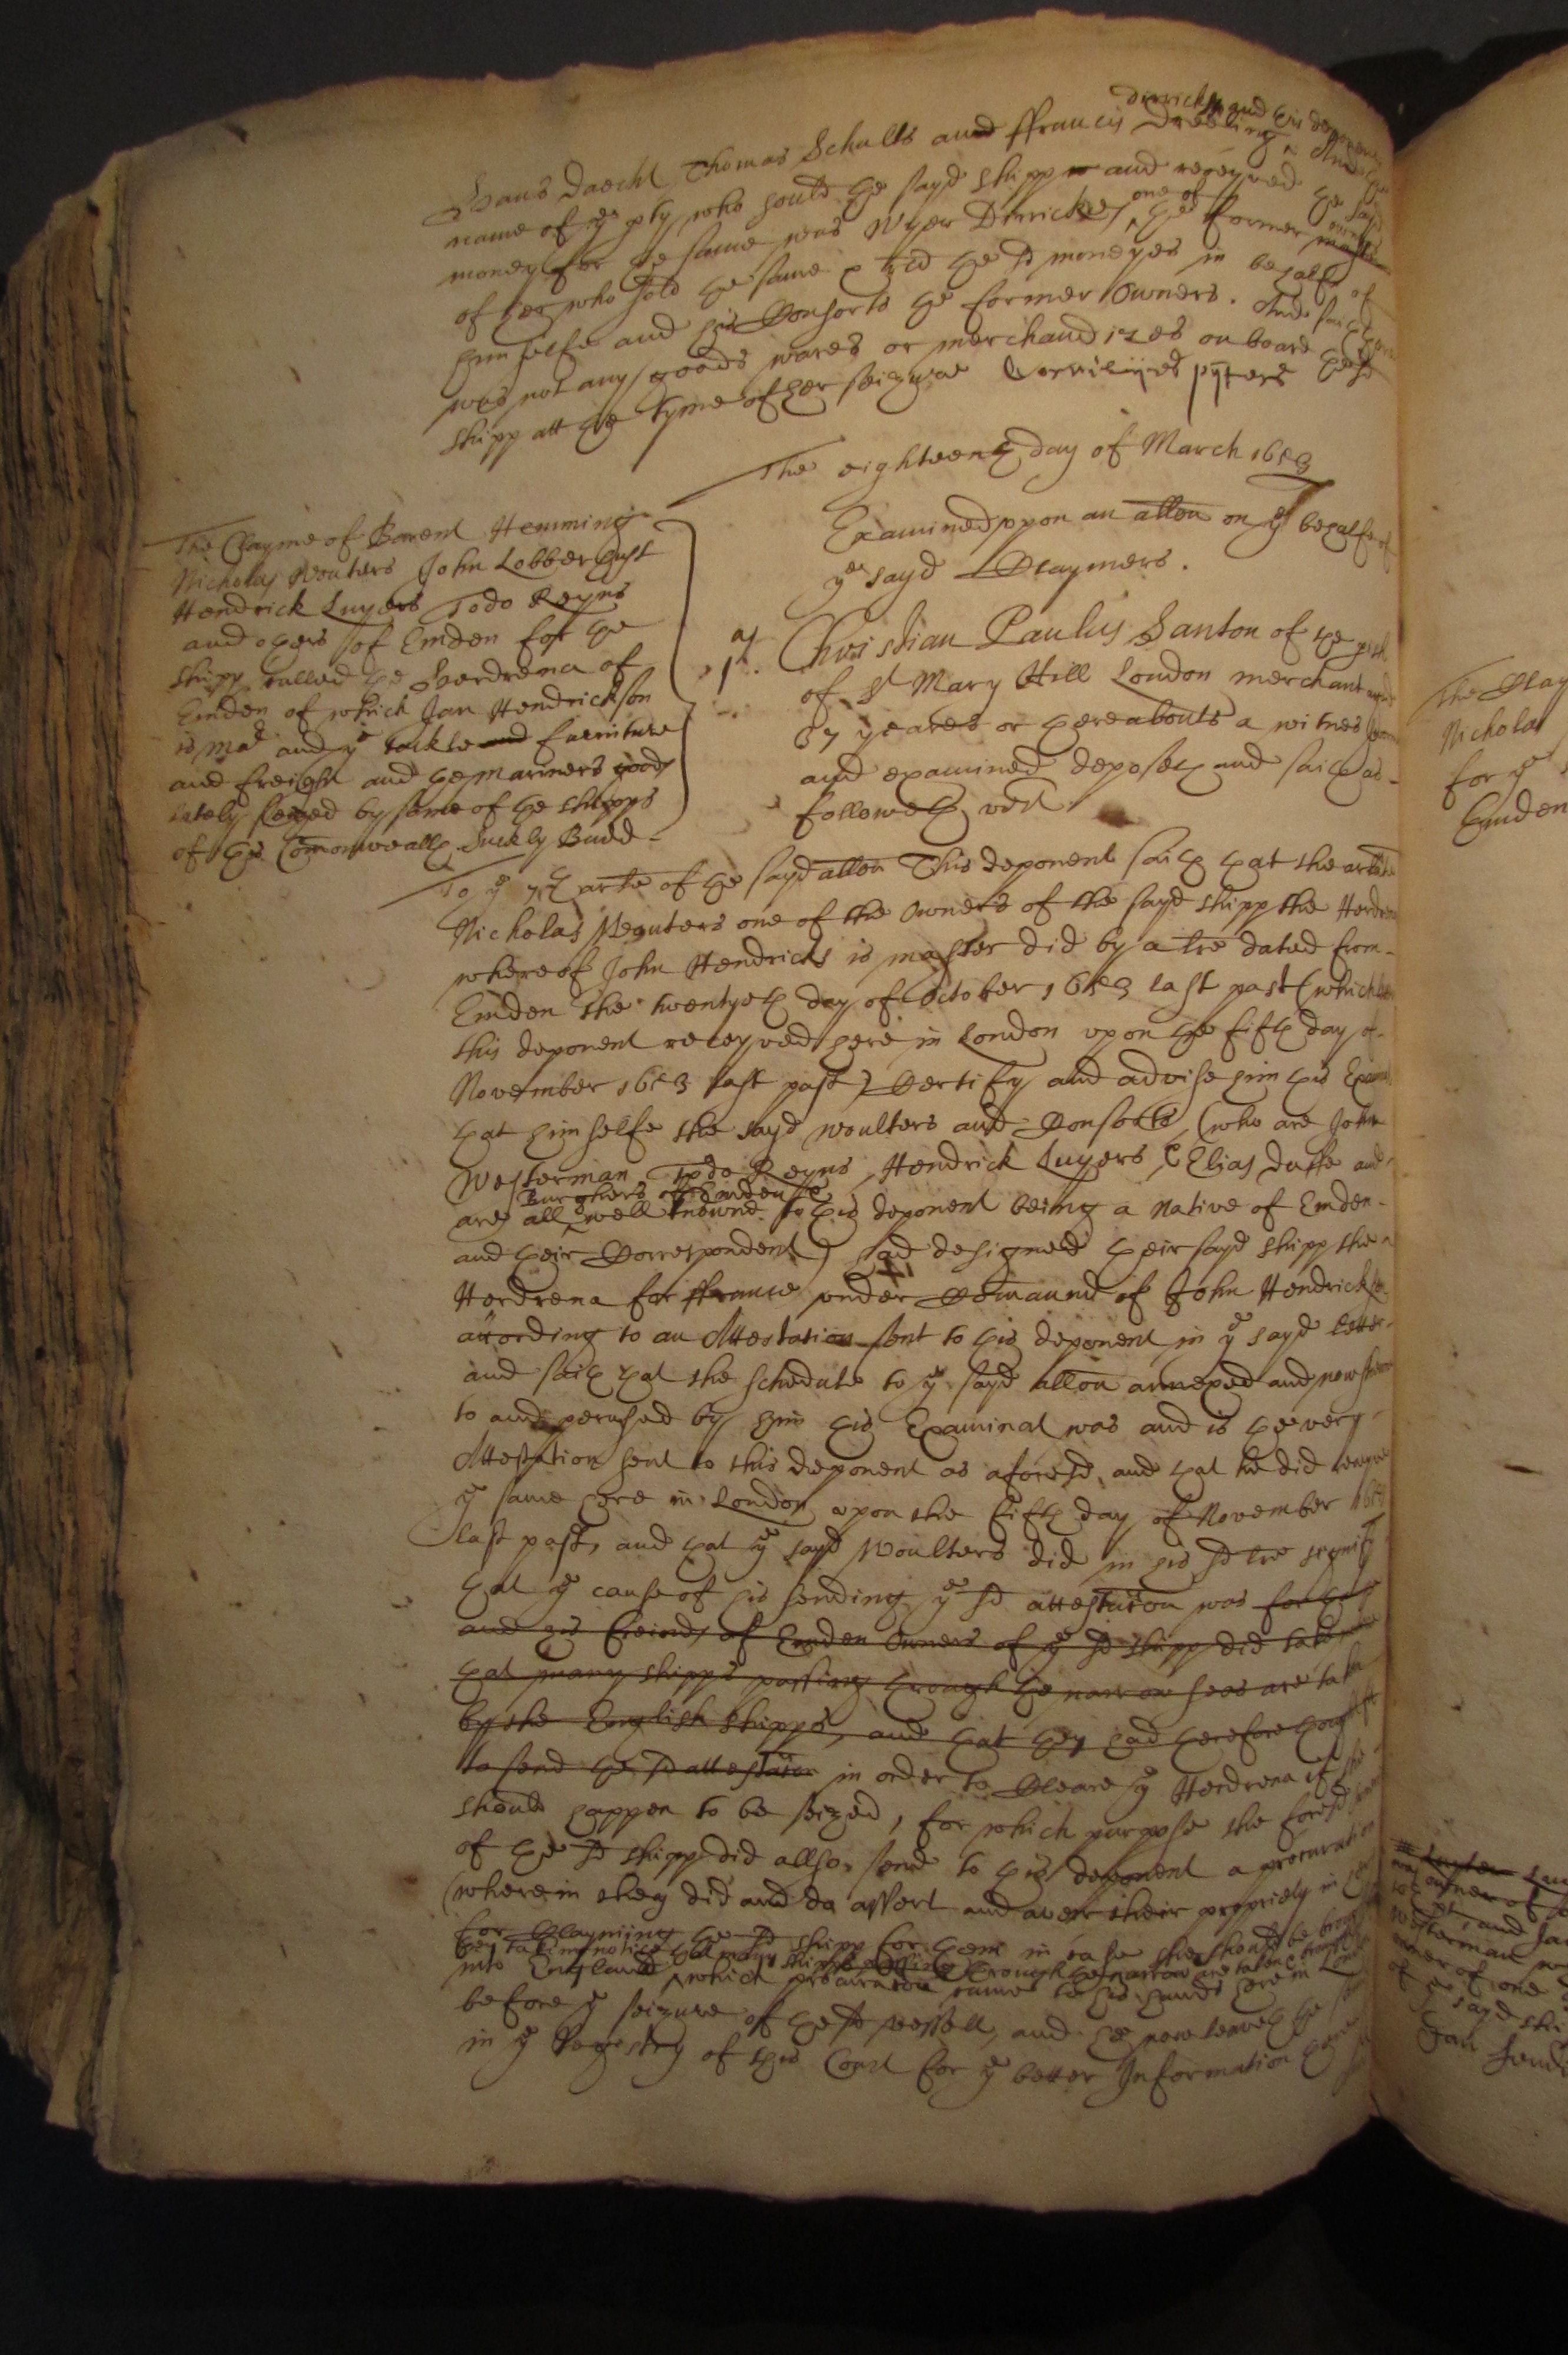 Derrickx and this deponent
Hans Daecht Thomas Schults and ffrancis Dresling And the
name of ye pty who sould the sayd shipp and receyved the sayd
money for the same was Wyer Derrickes one of the former owners
of her who sold the same & recd the sd moneyes in behalfe of
himselfe and his Consorts the former Owners. And saith there
was not any goods wares or merchandizes on board the sd
shipp att the tyme of her seizure Cornilijes pijters
The eighteenth day of March 1653
Examined upon an allon on ye behalfe of
ye sayd Claymers.
The Clayme of Barent Hemming
Nicholas Wouters John Lobber
Hendrick Luyers Todo Reyns
and others of Emden for the
shipp called the Herdrena of
Emden of which Jan Hendrickson
is mar and ye tackle and furniture
and freight and the mariners goods
lately seized by some of the shipps
of this Comonwealth Suckly Budd
1st. Christian Paulus Santon of the prish
of St Mary Hill London merchant aged
67 yeares or thereabouts a witnes sworne
and examined deposeth and saith as
followeth vizt
To ye 7th arte of the sayd allon This deponent saith that the arlate
Nicholas Wouters one of the Owners of the sayd shipp the Herdrena
whereof John Hendricks is master did by a lre dated from
Emden the twentyeth day of October 1653 last past (which lre
this deponent receyved here in London upon the fifth day of
November 1653 last past) Certify and advise him this Examt
that himselfe the sayd Woulters and Consorts, (who are John
Westerman Todo Reyns, Hendrick Luyers, & Elias Duffe and
Burghers of Emden &
are all well knowne to this deponent being a Native of Emden
and their Correspondent) had designed their sayd shipp the
Herdrena for ffrance under Comaund of John Hendrickson
according to an Attestation sent to this deponent in ye sayd letter
and saith that the schedule to ye sayd allon annexed and now showne
to and perused by him this Examinat was and is the very
Attestation sent to this deponent as aforesd, and that he did receyve
ye same here in London upon the fifth day of November 1653
last past, and that ye sayd Woulters did in his sd lre signify
that ye cause of his sending ye sd attestation was for that he
and his freinds of Emden Owners of ye sd shipp did take
that many shipps passing through the narrow seas are taken
by the English shipps, and that they had therefore thought fit
to send the sd attestation in order to Cleare ye Herdrena if she
should happen to be seized, for which purpose the foresd
of the sd shipp did allso send to this deponent a procuration
(wherein they did and do assert and aver their propriety in
for Clayming the sd shipp for them in case she should be brought
they taking notice that many shipps passing through the narrow are taken &
into England, which procuration came to his hands here in London
before ye seizure of the sd vessell, and he now leaveth the same
in ye Registry of this Court for ye better Information
The Clay
Nichola
for ye
Emden
was owner of
and
Westerman
owner of one
of ye sayd shi
Jan Hend